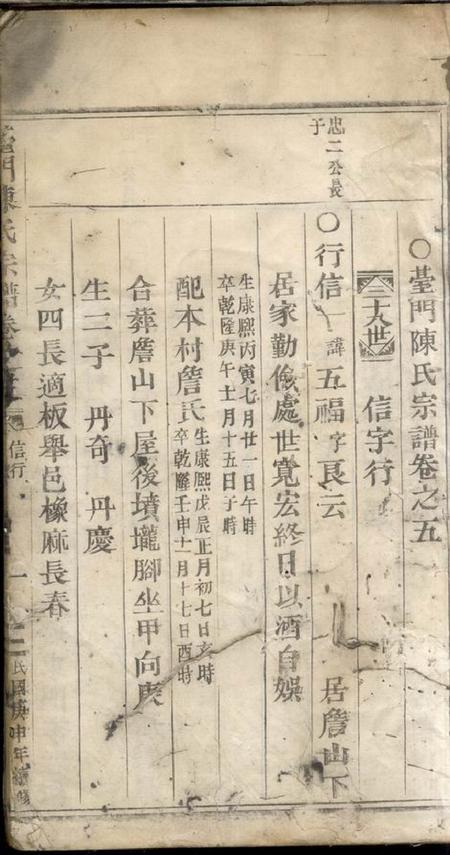 ○臺門陳氏宗譜卷之五
二十九世 信字行
忠二公長子
○行信一諱五福字良云 居詹山下
居家勤儉處世寬宏終日以酒自娛
生康熙丙寅七月廿一日午時
卒乾隆庚午十一月十五日子時
配本村詹氏生康熙戊辰正月初七日亥時
卒乾隆壬申十一月十七日酉時
合葬詹山下屋後墳壠腳坐甲向庚
生二子 丹奇 丹慶
女四長適板舉邑橡麻長春
臺門陳氏宗譜卷 信行 一 民國庚申年